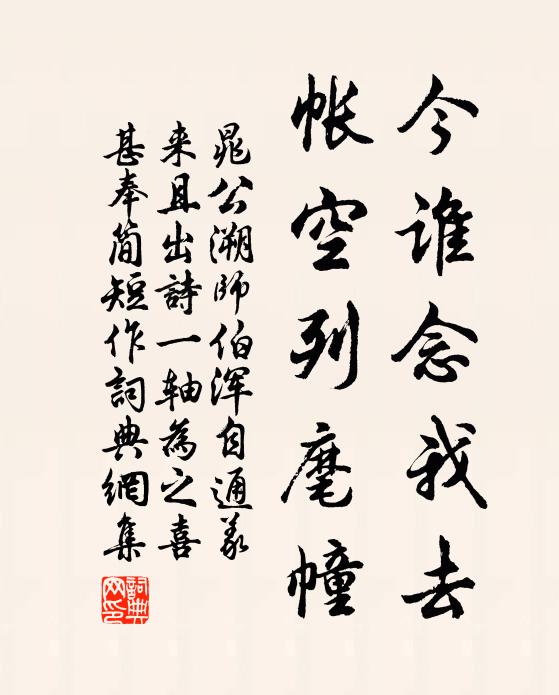 今谁念我去
帐空列麾幢
晁公溯师伯浑自通义
来且出詩一轴為之喜
甚奉简短作詞典網集
詞典网印